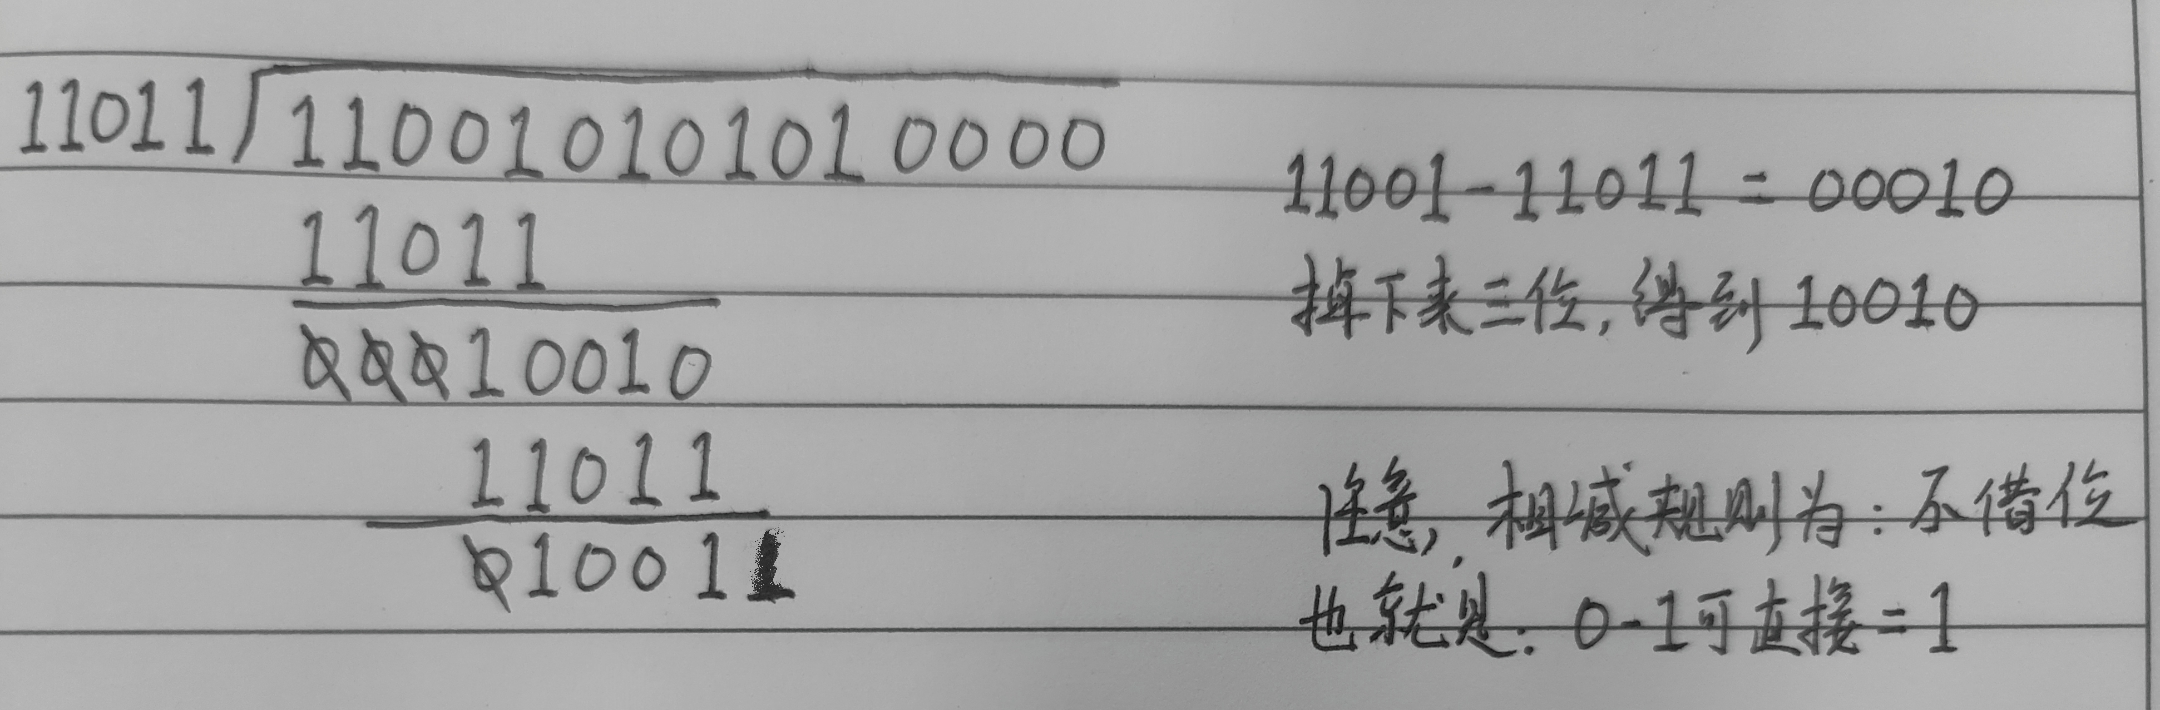 11011 110010101010000
11001-11011 = 00010
11011
掉下来三位,得到10010
00010010
11011
注意,相减规则为:不借位
010011
也就是:0-1可直接=1